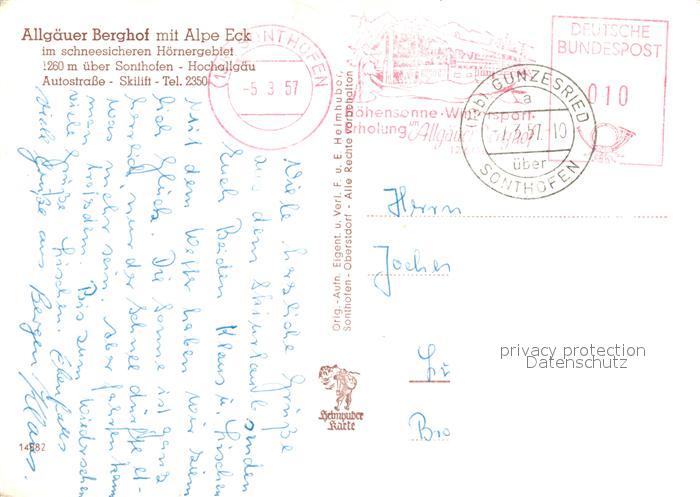 Allgäuer Berghof mit Alpe Eck
im schneesicheren Hörnergebiet
1260 m über Sonthofen - Hochallgäu
Autostraße - Skilift - Tel. 2350
SONTHOFEN
-5.3.57
Höhensonne · Wintersport
Erholung im Allgäuer Berghof
DEUTSCHE
BUNDESPOST
010
GUNZESRIED
a
3.57.10
über
SONTHOFEN
Orig.-Aufn. Eigent. u. Verl. F. u. E. Heimhuber,
Sonthofen - Oberstdorf - Alle Rechte vorbehalten
Viele herzliche Grüße
aus dem Skiurlaub senden
Euch Beiden Klaus u. Lieschen
Mit dem Wetter haben wir viel
Glück. Die Sonne ist ganz
herrlich nur der Schnee dürfte et-
was mehr sein. Aber fahren kann
man trotzdem. Bis zum Wiedersehen
viele Grüße Lieschen. Ebenfalls
viele Grüße aus Bergen Klaus.
Herrn
Jochen
Heimhuber
Karte
14682
privacy protection
Datenschutz